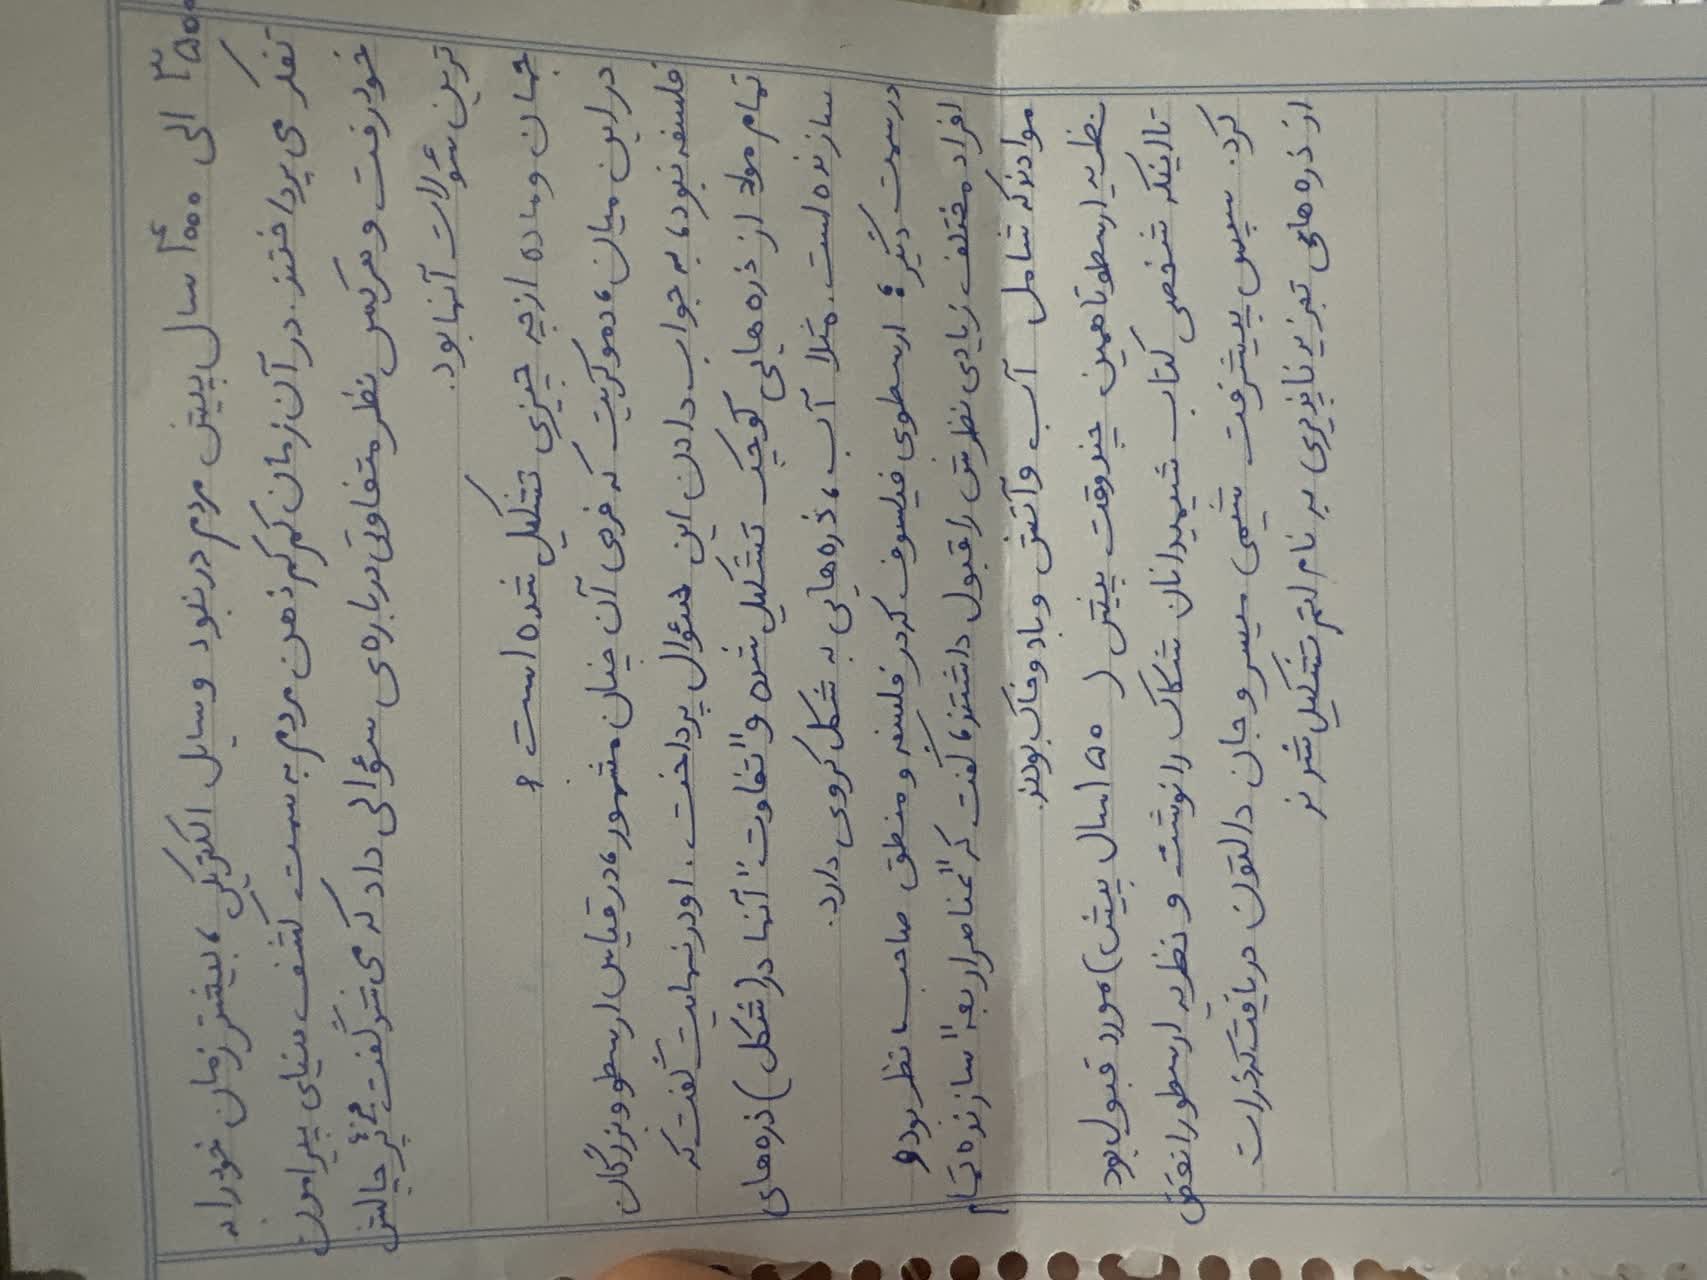 ۳۵۰۰ الی ۴۰۰۰ سال پیش مردم در نبود وسایل الکتریکی، بیشتر زمان خود را به
تفکر می پرداختند. در آن زمان کم کم ذهن مردم به سمت کشف دنیای پیرامون
خود رفت و هرکس نظر متفاوتی درباره‌ی سؤالی داد که می شد گفت جزء پُر چالش
ترین سئولات آنها بود.
جهان و ماده از چه چیزی تشکیل شده است؟
در این میان، دموکریت که فردی آن چنان مشهور، در قیاس ارسطو و بزرگان
فلسفه نبود، به جواب دادن این سؤال پرداخت. او در نهایت گفت که
تمام مواد از ذره هایی کوچک تشکیل شده و "تفاوت" آنها در (شکل) ذره های
سازنده است. مثلا آب، ذره هایی به شکل کروی دارد.
در سمت دیگر؛ ارسطوی فیلسوف که در فلسفه و منطق صاحب نظر بود و
افراد مختلف زیادی نظرش را قبول داشتند، گفت که "عناصر اربعه" سازنده تمام
موادند که شامل آب و آتش و باد و خاک بودند.
نظریه ارسطو تا همین چند وقت پیش (۱۵۰ سال پیش) مورد قبول بود
تا اینکه شخصی کتاب شیمیدانان شکاک را نوشت و نظریه ارسطو را نقض
کرد. سپس پیشرفت شیمی میسر و جان دالتون دریافت که ذرات
از ذره هایی تجزیه ناپذیری به نام اتم تشکیل شدند